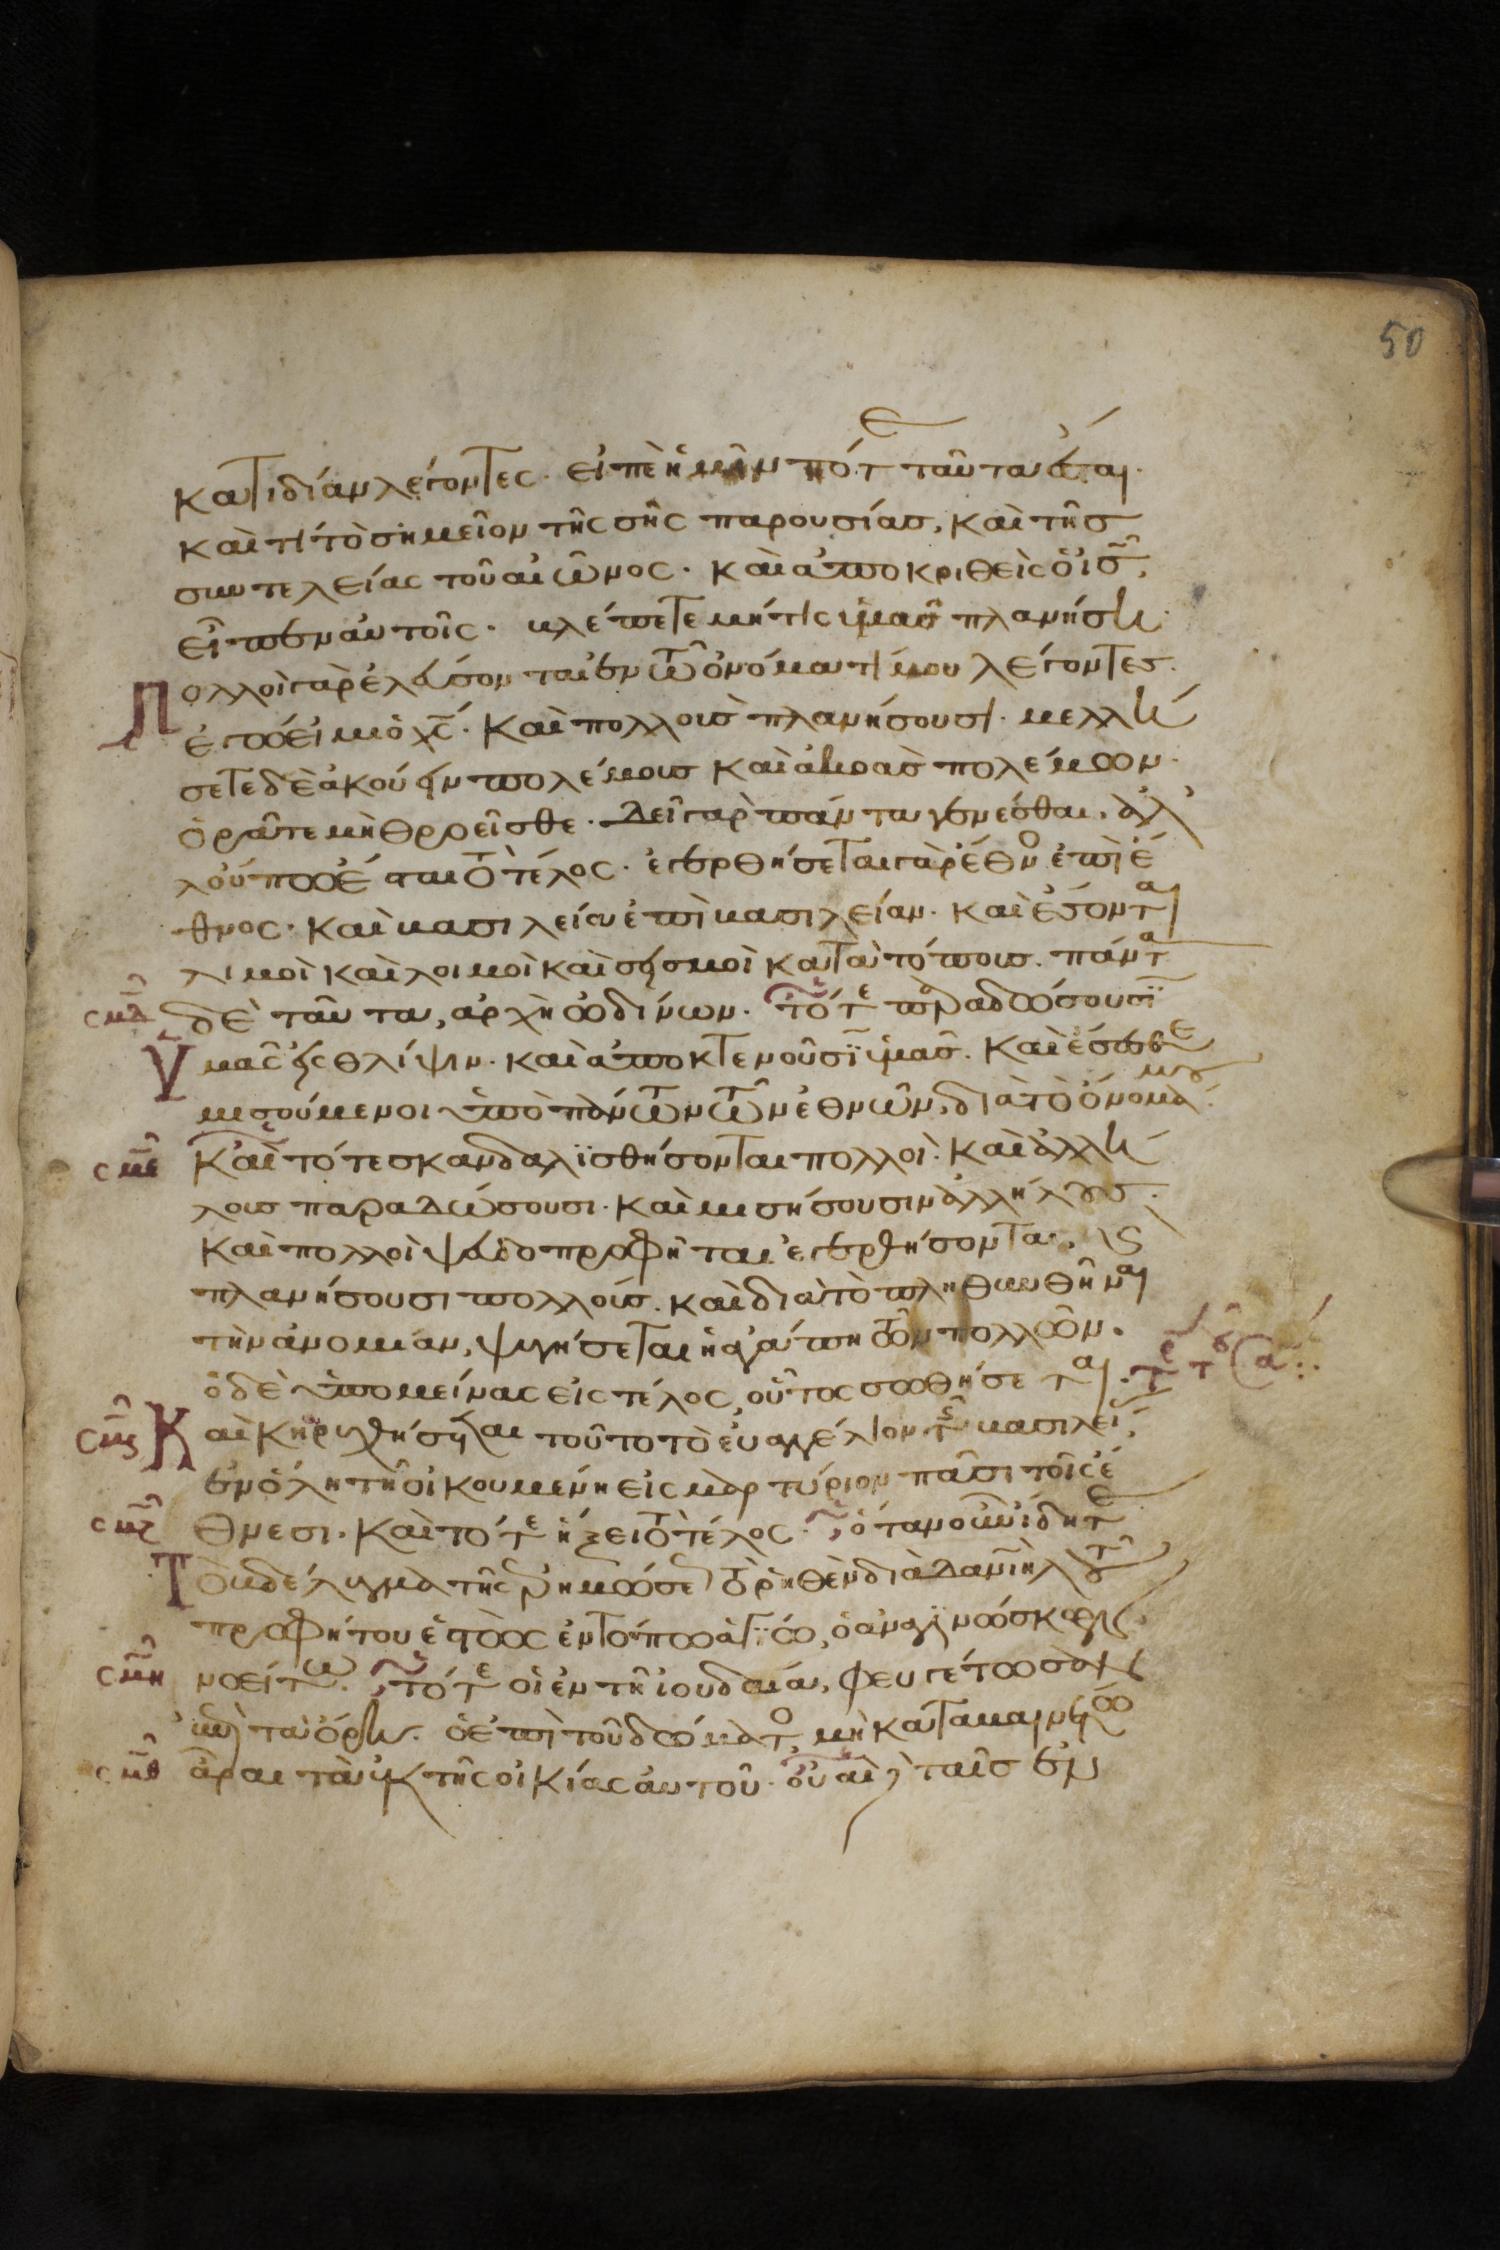 50
κατιδίαν λέγοντες· εἰπὲ ἡμῖν πότε ταῦτα ἔσται·
καὶ τί τὸ σημεῖον τῆς σῆς παρουσίας, καὶ τῆς
συντελείας τοῦ αἰῶνος· καὶ ἀποκριθεὶς ὁ ις̄,
εἶπεν αὐτοῖς· βλέπετε μήτις ὑμᾶς πλανήσῃ·
Πολλοὶ γὰρ ἐλεύσονται ἐν τῶ ὀνόματί μου λέγοντες·
ἐγώ εἰμι ὁ χς̄· καὶ πολλοὺς πλανήσουσι· μελλή
σετε δὲ ἀκούειν πολέμους καὶ ἀκοὰς πολέμων·
ὁρᾶτε μὴ θροεῖσθε· δεῖ γὰρ πάντα γενέσθαι, ἀλ
λ' οὔπω ἐστὶ τὸ τέλος· ἐγερθήσεται γὰρ ἔθνος ἐπὶ ἔ
θνος· καὶ βασιλεία ἐπὶ βασιλείαν· καὶ ἔσονται
λιμοὶ καὶ λοιμοὶ καὶ σεισμοὶ κατὰ τόπους· πάντα
σμδ δὲ ταῦτα, ἀρχὴ ὠδίνων· τότε παραδώσουσϊ
Ὑμᾶς εἰς θλίψιν· καὶ ἀποκτενοῦσϊ ὑμᾶς· καὶ ἔσεσθε
μισούμενοι ὑπὸ πάντων τῶν ἐθνῶν, διὰ τὸ ὄνομά μου·
σμε Καὶ τότε σκανδαλϊσθήσονται πολλοὶ· καὶ ἀλλή
λους παραδώσουσι· καὶ μισήσουσιν ἀλλήλους·
καὶ πολλοὶ ψευδοπροφῆται ἐγερθήσονται, καὶ
πλανήσουσι πολλούς· καὶ διὰ τὸ πληθυνθῆναι
τὴν ἀνομίαν, ψυγήσεται ἡ ἀγάπη τῶν πολλῶν·
ὁ δὲ ὑπομείνας εἰς τέλος, οὗτος σωθήσεται·
σμς Καὶ κηρυχθήσεται τοῦτο τὸ εὐαγγέλιον τῆς βασιλείας
ἐν ὅλη τῆ οἰκουμένη εἰς μαρτύριον πᾶσι τοῖς ἔ
σμζ θνεσι· καὶ τότε ἥξει τὸ τέλος· ὅταν οὖν ἴδητε
Τὸ βδέλυγμα τῆς ἐρημώσεως τὸ ρηθὲν διὰ δανιὴλ τοῦ
προφήτου ἑστὼς ἐν τόπω ἁγϊω, ὁ ἀναγϊνώσκων
σμη νοείτω· τότε οἱ ἐν τῆ ἰουδαία, φευγέτωσαν
ἐπὶ τὰ ὄρη· ὁ ἐπὶ τοῦ δώματος, μὴ καταβαινέτω
σμθ ἆραι τὰ ἐκ τῆς οἰκίας αὐτοῦ· οὐαὶ ταῖς ἐν